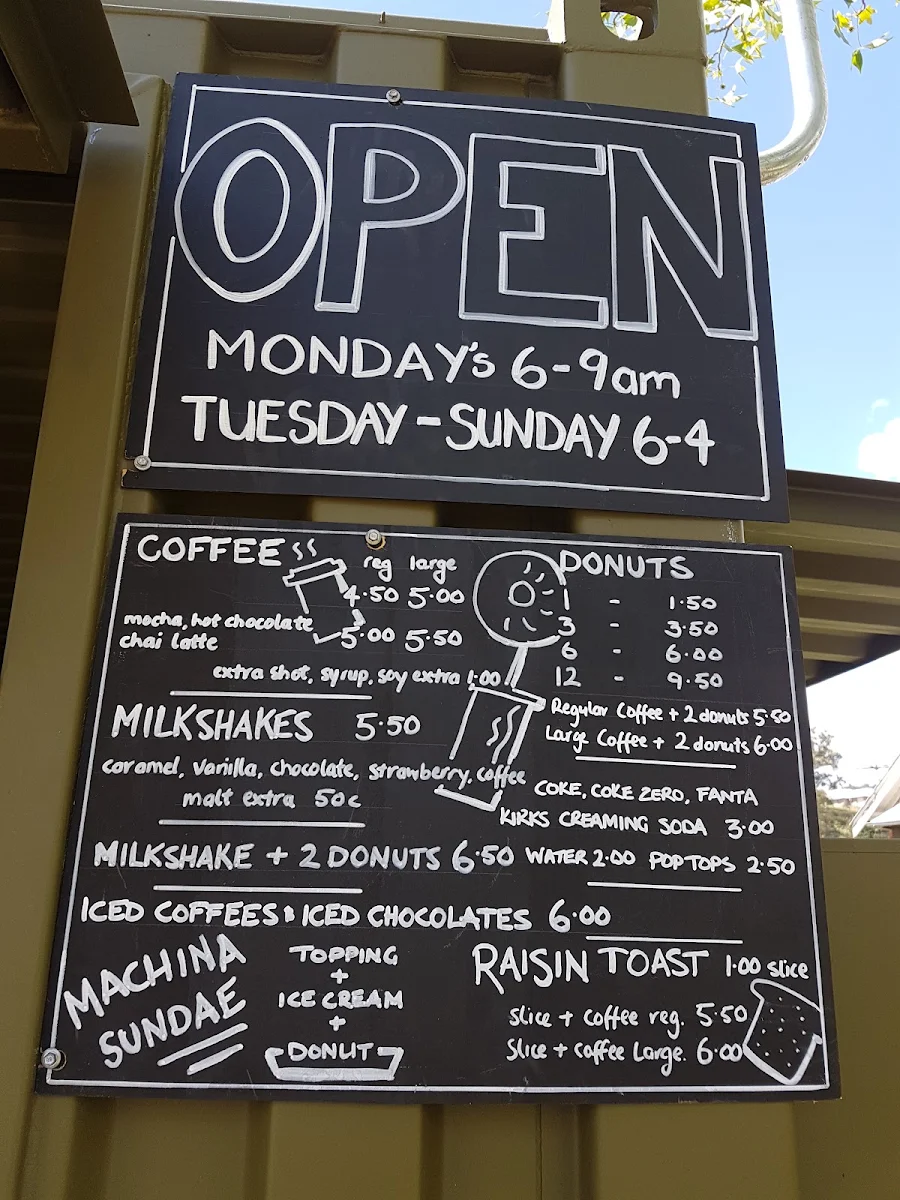 OPEN
MONDAY's 6-9am
TUESDAY - SUNDAY 6-4
COFFEE
reg large
4.50 5.00
mocha, hot chocolate
chai latte
5.00 5.50
extra shot, syrup, soy extra 1.00
MILKSHAKES 5.50
caramel, vanilla, chocolate, strawberry, coffee
malt extra 50c
MILKSHAKE + 2 DONUTS 6.50
ICED COFFEES & ICED CHOCOLATES 6.00
MACHINA
SUNDAE
TOPPING
+
ICE CREAM
+
DONUT
DONUTS
1 - 1.50
3 - 3.50
6 - 6.00
12 - 9.50
Regular Coffee + 2 donuts 5.50
Large Coffee + 2 donuts 6.00
COKE, COKE ZERO, FANTA
KIRKS CREAMING SODA 3.00
WATER 2.00 POP TOPS 2.50
RAISIN TOAST 1.00 slice
slice + coffee reg. 5.50
slice + coffee large. 6.00